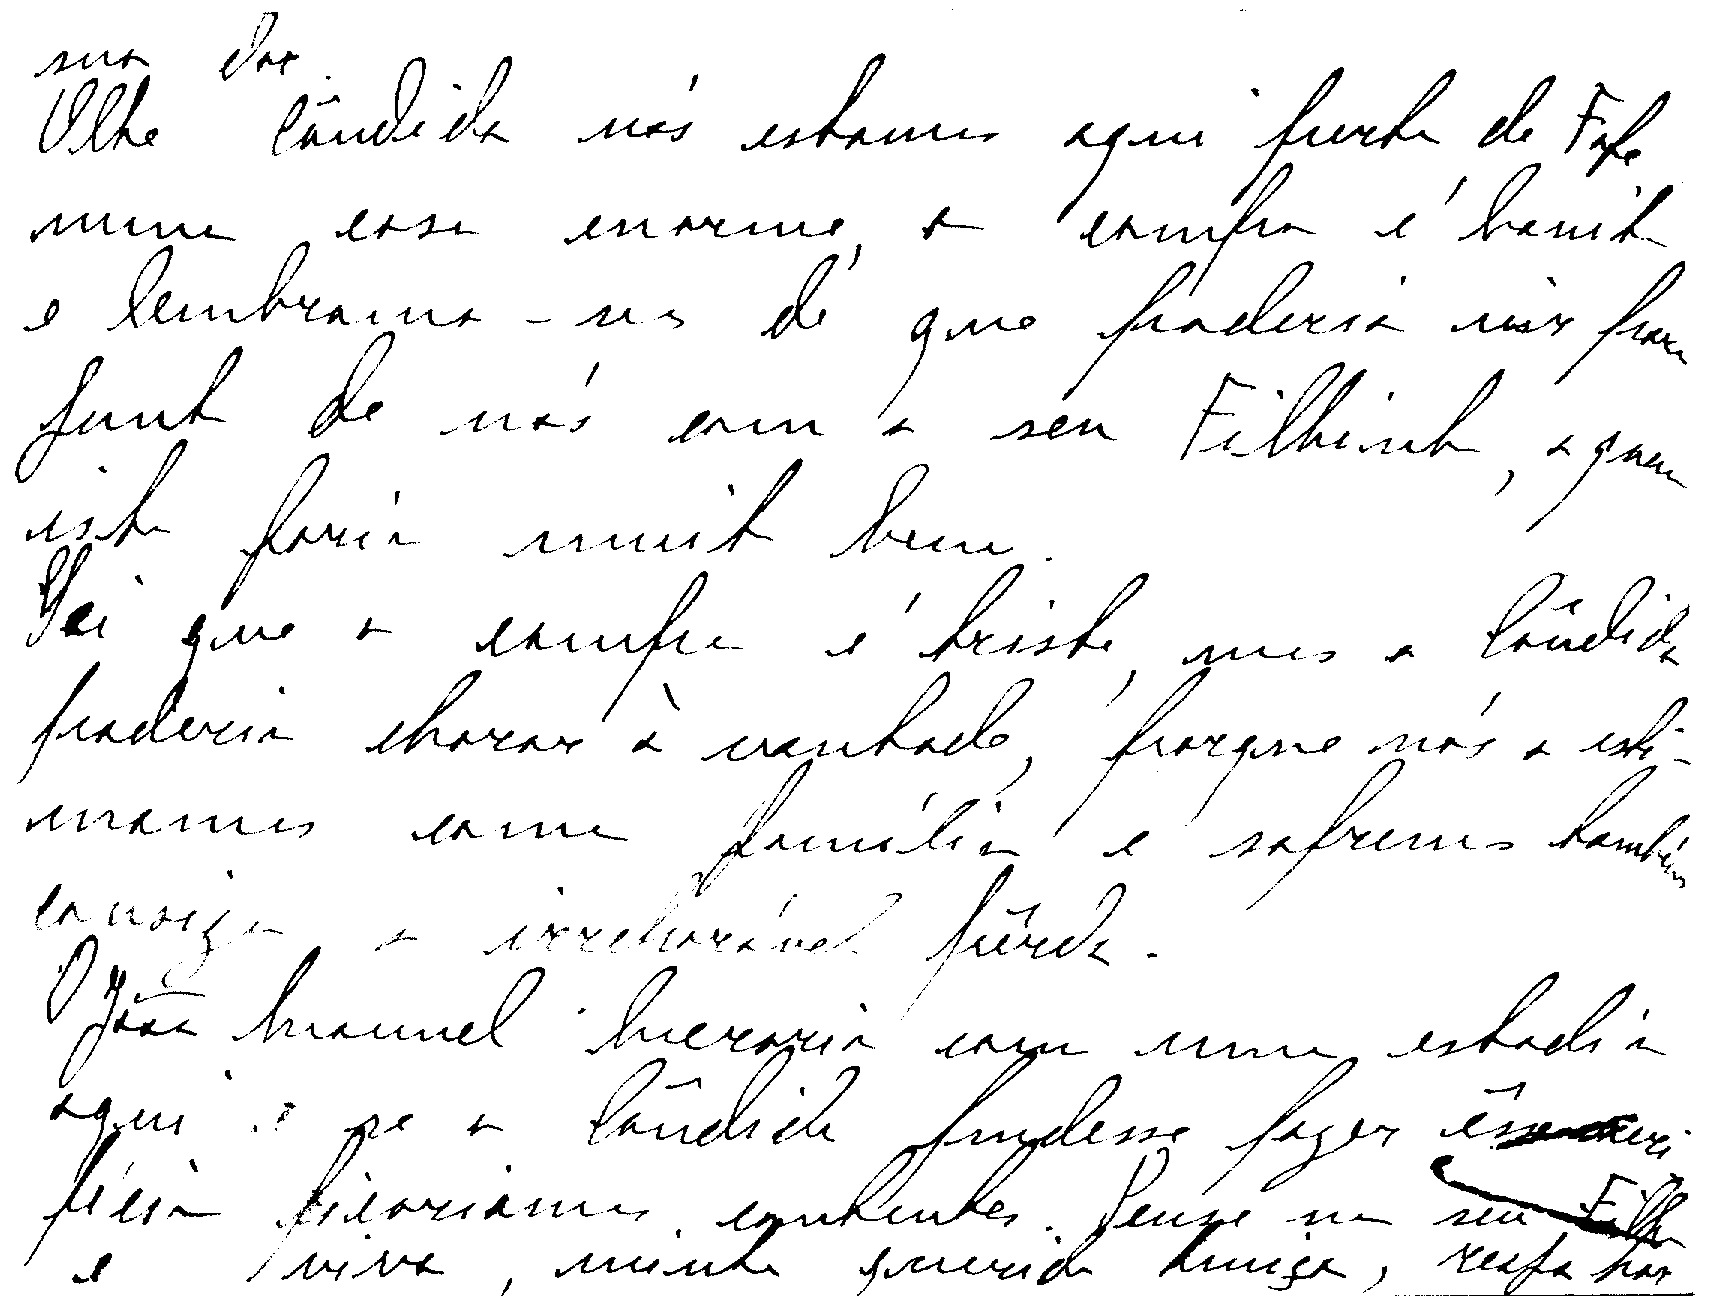 sua dor.
Olhe Cândida nós estamos aqui perto de Fafe
numa casa enorme, o campo é bonito
e lembramo-nos de que poderia vir para
junto de nós com o seu Filhinho, a quem
isto faria muito bem.
Sei que o campo é triste, mas a Cândida
poderia chorar à vontade, porque nós a esti-
mamos como família e sofremos também
consigo a irreparável pêrda.
O João Manuel lucraria com uma estadia
aqui e se a Cândida pudesse fazer êsse sacri
fício ficariamos contentes. Pense no seu Filho
e viva, minha querida Amiga,